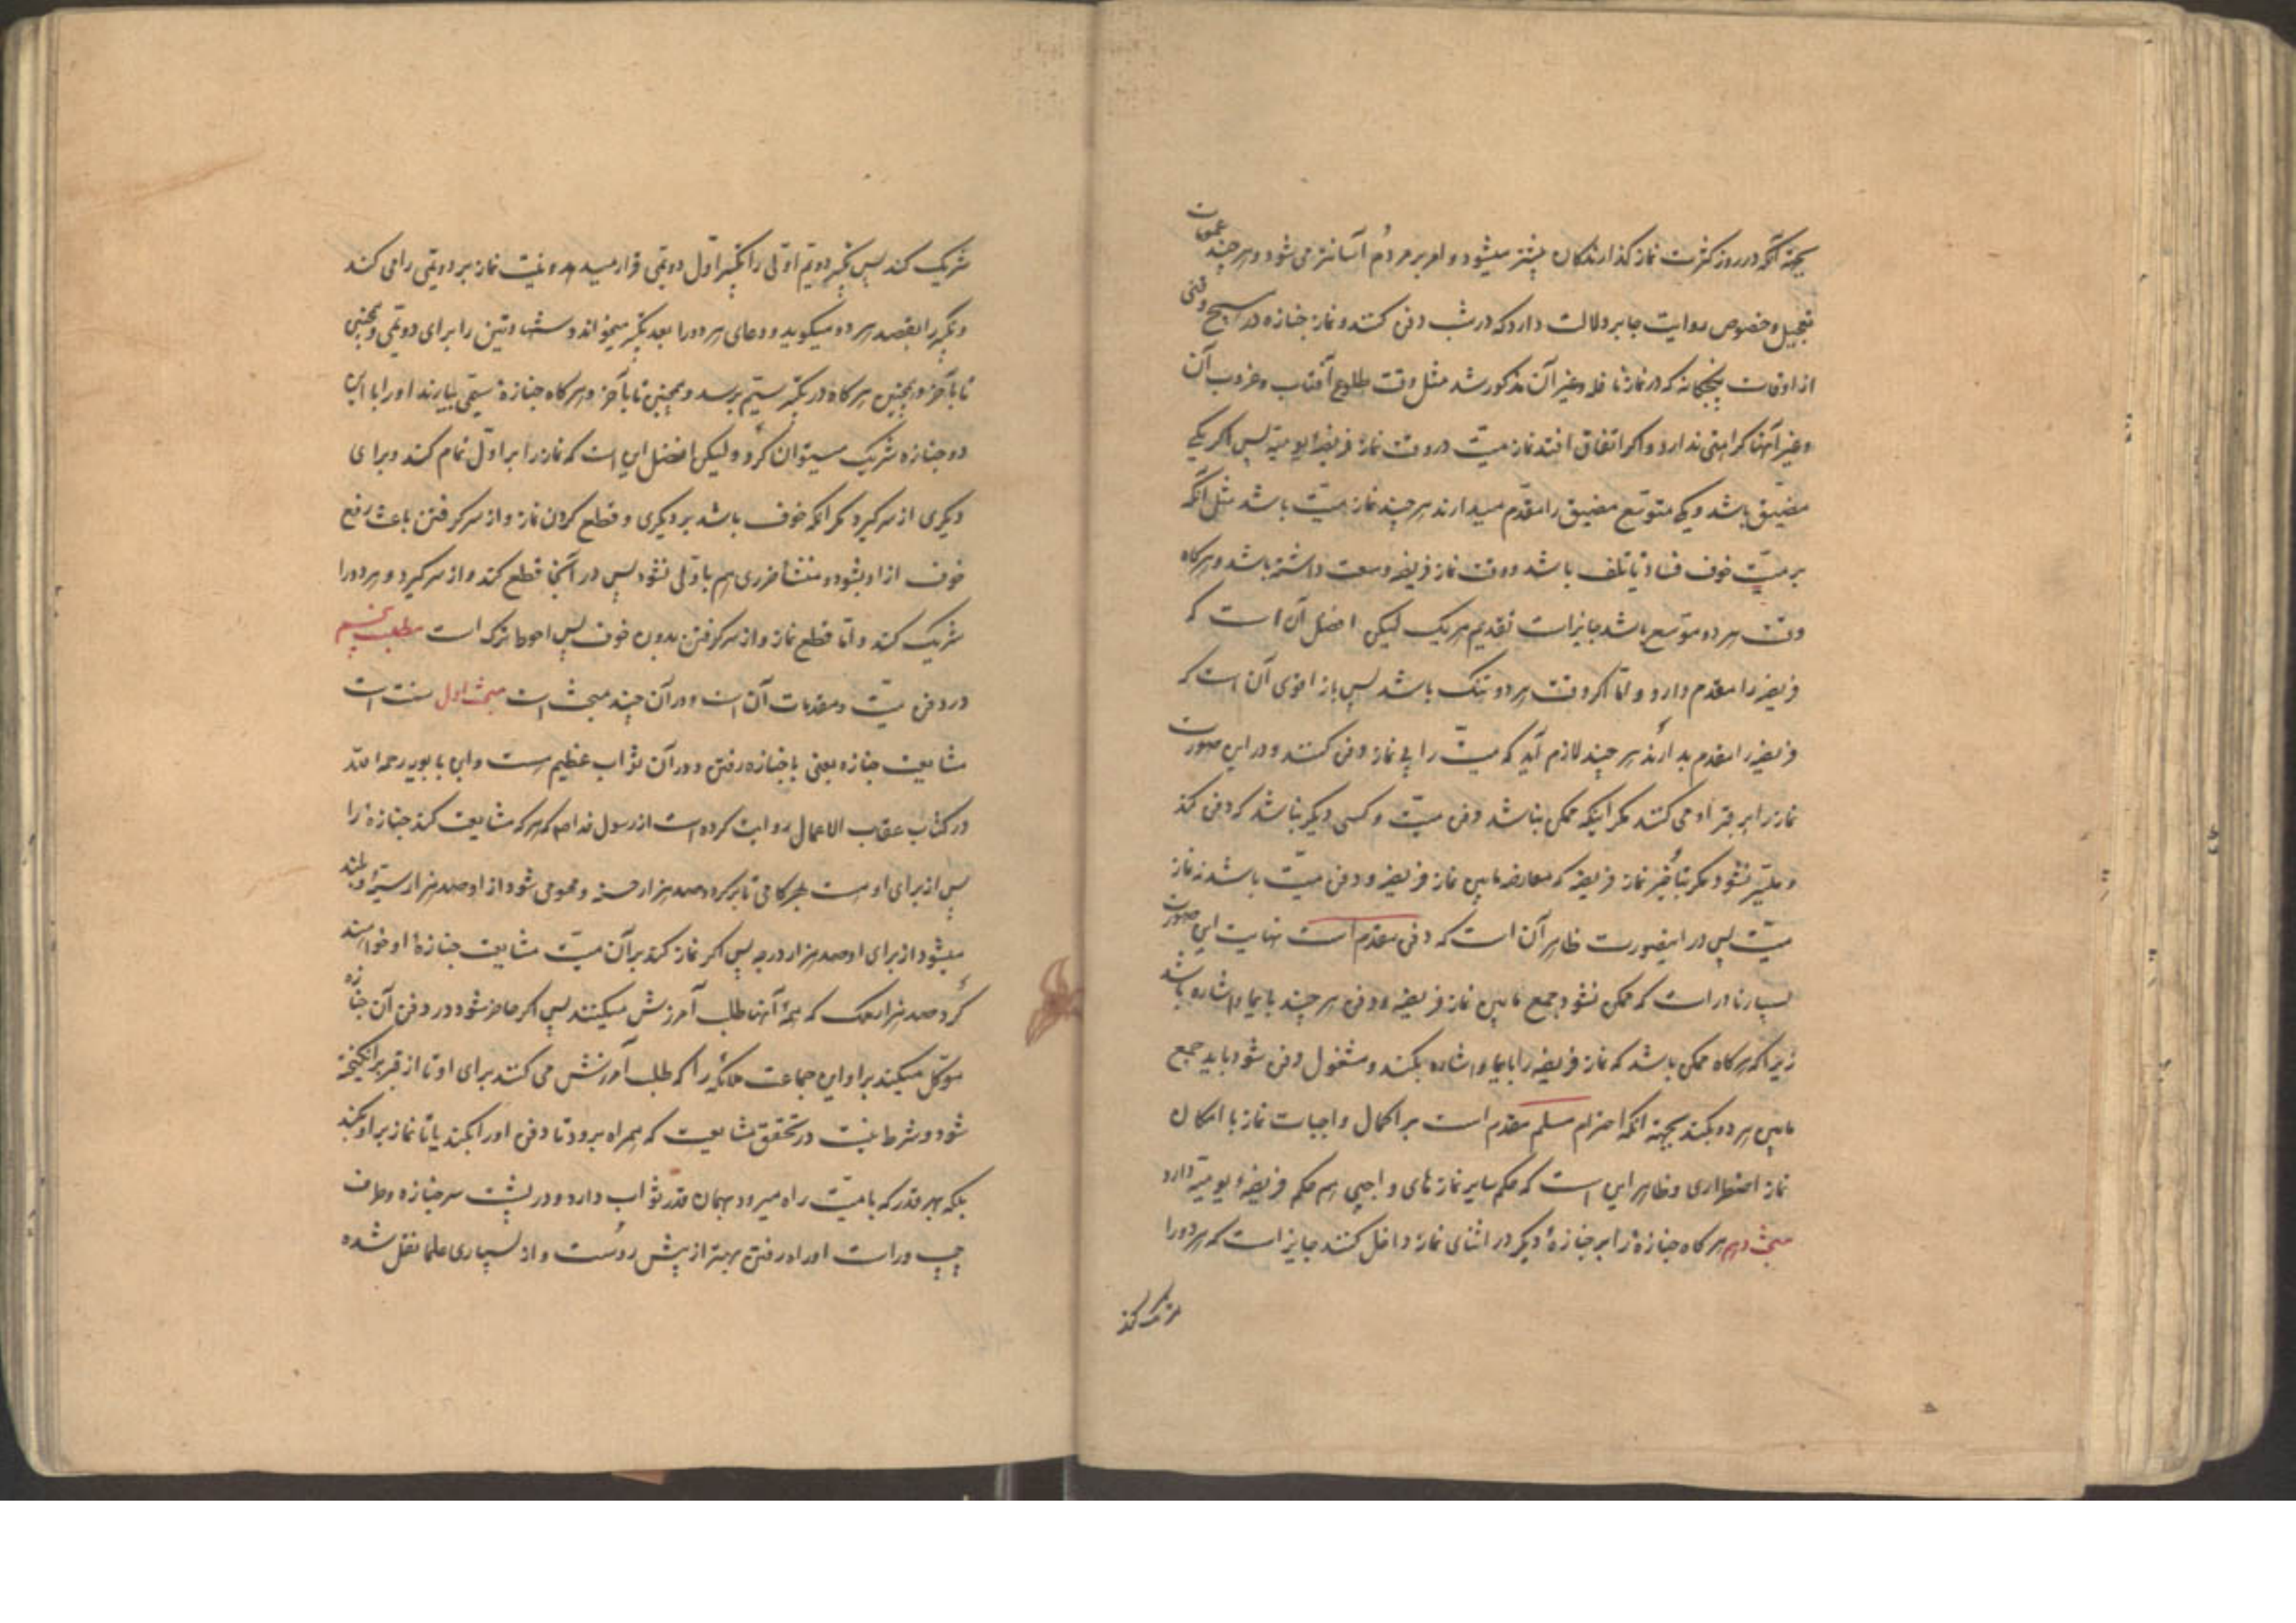 بجهة آنکه در روز کثرت نماز کذارندکان بیشتر میشود و امر بر مردم آسانتر می شود و هر چند عمومات
تعجیل و خصوص روایت جابر دلالت دارد که در شب دفن کنند و نماز جنازه در هیچ وقتی
از اوقات پنجکانه که در نماز نافله و غیر آن مذکور شد مثل وقت طلوع آفتاب و غروب آن
و غیر آنها کراهتی ندارد و اکر اتفاق افتد نماز میّت در وقت نماز فریضهٔ یومیّه پس اکر یکی
مضیّق باشد و یکی متوسّع مضیق را مقدّم میدارند هر چند نماز میّت باشد مثل آنکه
بر میّت خوف فساد یا تلف باشد و وقت نماز فریضه وسعت داشته باشد و هرکاه
وقت هر دو موّسع باشد جایز است تقدیم هر یک لیکن افضل آن است که
فریضه را مقدم دارد و امّا اکر وقت هر دو تنک باشد پس باز اقوی آن است که
فریضه را مقدم بدارند هر چند لازم آید که میّت را بی نماز دفن کنند و در این صورت
نماز را بر قبر او می کنند مکر اینکه ممکن نباشد دفن میّت و کسی دیکر نباشد که دفن کند
و میّسر نشود مکر بتأخیر نماز فریضه که معارضه مابین نماز فریضه و دفن میّت باشد نه نماز
میّت پس در اینصورت ظاهر آن است که دفن مقدم است نهایت این صورت
بسیار نادر است که ممکن نشود جمع مابین نماز فریضه و دفن هر چند بایما و اشاره باشد
زیرا که هرکاه ممکن باشد که نماز فریضه را بایما و اشاره بکند و مشغول دفن شود باید جمع
مابین هر دو بکند بجهة آنکه احترام مسلم مقدم است بر اکمال واجبات نماز با امکان
نماز اضطراری و ظاهر این است که حکم سایر نماز های واجبی هم حکم فریضهٔ یومیّه دارد
مبحث دهم هرکاه جنازهٔ را بر جنازهٔ دیکر در اثنای نماز داخل کنند جایز است که هر دو را
شریک کند
شریک کند پس تکبیر دویّم اوّلی را تکبیر اوّل دویّمی قرار میدهد و نیّت نماز بر دویّمی را می کند
و تکبیر را بقصد هر دو میکوید و دعای هر دو را بعد تکبیر میخواند و شهادتین را برای دویّمی و همچنین
تا بآخر و همچنین هرکاه در تکبیر سیّم برسد و همچنین تا بآخر و هرکاه جنازهٔ سیّمی بیارند او را با این
دو جنازه شریک میتوان کرد ولیکن افضل این است که نماز را بر اوّل تمام کند و برای
دیکری از سر کیرد مکر آنکه خوف باشد بر دیکری و قطع کردن نماز و از سر کرفتن باعث رفع
خوف از او بشود و منشأ ضرری هم باوّلی نشود پس در آنجا قطع کند و از سر کیرد و هر دو را
شریک کند و امّا قطع نماز و از سر کرفتن بدون خوف پس احوط ترک است مطلب پنجم
در دفن میّت و مقدمات آن است و در آن چند مبحث است مبحث اول سنت است
مشایعت جنازه یعنی با جنازه رفتن و در آن ثواب عظیم هست و ابن بابویه رحمه الله
در کتاب عقاب الاعمال روایت کرده است از رسول خدا صم که هر که مشایعت کند جنازهٔ را
پس از برای او هست بهر کامی تا بر کردد صد هزار حسنه و محو می شود از او صد هزار سیّئه و بلند
میشود از برای او صد هزار درجه پس اکر نماز کند بر آن میّت مشایعت جنازهٔ او خواهند
کرد صد هزار ملک که همهٔ آنها طلب آمرزش میکنند پس اکر حاضر شود در دفن آن جنازه
موّکل میکند بر او این جماعت ملائکه را که طلب آمرزش می کنند برای او تا از قبر بر انکیخته
شود و شرط نیست در تحقق مشایعت که همراه برود تا دفن او را بکند یا تا نماز بر او بکند
بلکه بهر قدر که با میّت راه میرود بهمان قدر ثواب دارد و در پشت سر جنازه و طرف
چپ و راست او راه رفتن بهتر از پیش رو است و از بسیاری علما نقل شده